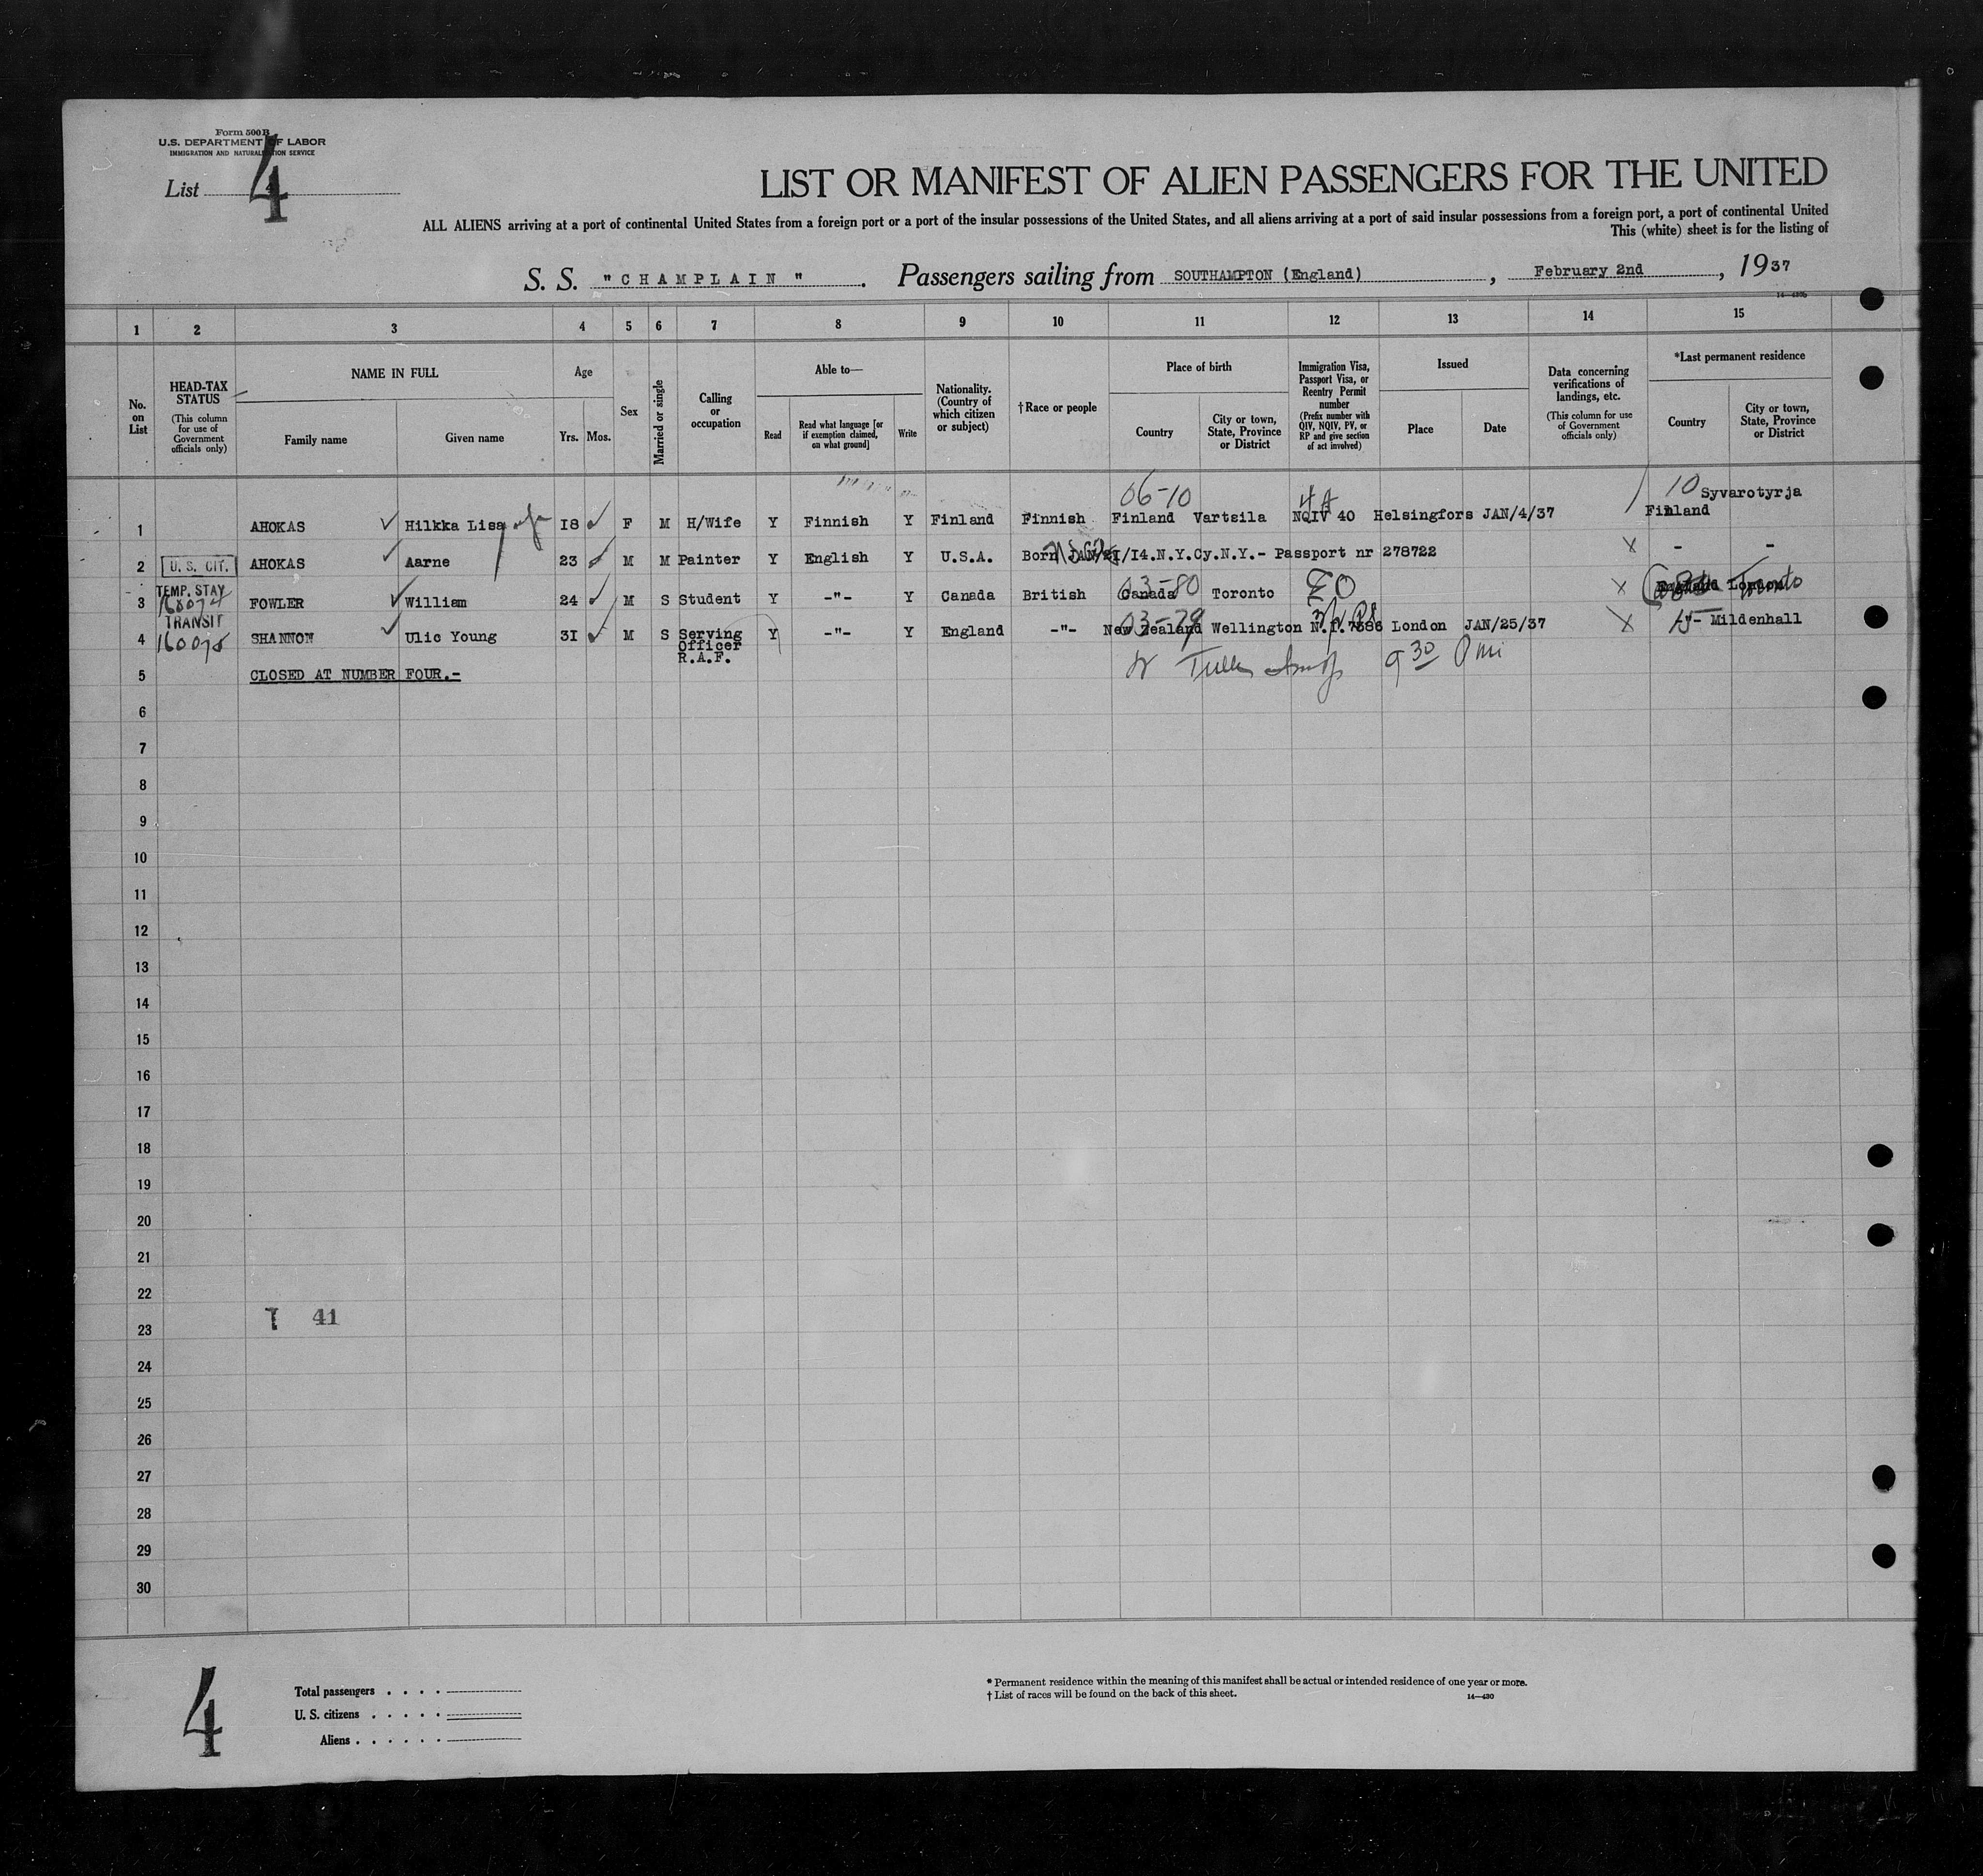 Form 500 B
U.S. DEPARTMENT OF LABOR
IMMIGRATION AND NATURALIZATION SERVICE
List 4
LIST OR MANIFEST OF ALIEN PASSENGERS FOR THE UNITED
ALL ALIENS arriving at a port of continental United States from a foreign port or a port of the insular possessions of the United States, and all aliens arriving at a port of said insular possessions from a foreign port, a port of continental United
This (white) sheet is for the listing of
S. S. "CHAMPLAIN". Passengers sailing from SOUTHAMPTON (England), February 2nd, 1937
1 2 3 4 5 6 7 8 9 10 11 12 13 14 15
No. on List
HEAD-TAX STATUS
(This column for use of Government officials only)
NAME IN FULL
Family name Given name
Age
Yrs. Mos.
Sex
Married or single
Calling or occupation
Able to—
Read
Read what language [or if exemption claimed, on what ground]
Write
Nationality. (Country of which citizen or subject)
†Race or people
Place of birth
Country
City or town, State, Province or District
Immigration Visa, Passport Visa, or Reentry Permit number
(Prefix number with QIV, NQIV, PV, or RP and give section of act involved)
Issued
Place Date
Data concerning verifications of landings, etc.
(This column for use of Government officials only)
*Last permanent residence
Country
City or town, State, Province or District
06-10 4A 10 Syvarotyrja
1 AHOKAS Hilkka Lisa 18 F M H/Wife Y Finnish Y Finland Finnish Finland Vartsila NQIV 40 Helsingfors JAN/4/37 Finland
2 U.S. CIT. AHOKAS Aarne 23 M M Painter Y English Y U.S.A. Born JAN/21/14.N.Y.Cy.N.Y.- Passport nr 278722 - -
TEMP. STAY
03-80
3 FOWLER William 24 M S Student Y -"- Y Canada British Canada Toronto Toronto
TRANSIT
03-79
4 160075 SHANNON Ulic Young 31 M S Serving Officer R.A.F. Y -"- Y England -"- New Zealand Wellington London JAN/25/37 -"- Mildenhall
9 30 Pm
5 CLOSED AT NUMBER FOUR.-
6
7
8
9
10
11
12
13
14
15
16
17
18
19
20
21
22
41
23
24
25
26
27
28
29
30
4
Total passengers . . . .
U. S. citizens . . . . .
Aliens . . . . . .
* Permanent residence within the meaning of this manifest shall be actual or intended residence of one year or more.
† List of races will be found on the back of this sheet.
14—430